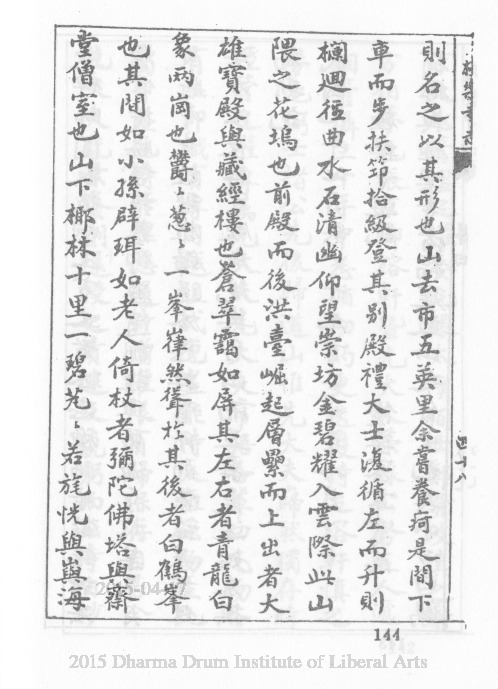 則名之以其形也山去市五英里余嘗養疴是間下
車而步扶筇拾級登其別殿禮大士復循左而升則
欄迴徑曲水石清幽仰望崇坊金碧耀入雲際此山
隈之花塢也前殿而後洪臺崛起層纍而上出者大
雄寶殿與藏經樓也蒼翠靄如屏其左右者青龍白
象兩崗也欝〻葱〻一峯嵂然聳於其後者白鶴峯
也其間如小孫辟珥如老人倚杖者彌陀佛塔與齋
堂僧室也山下椰林十里一碧芃〻若旄恍與嶼海
四十八
144
2015-04-
2015 Dharma Drum Institute of Liberal Arts